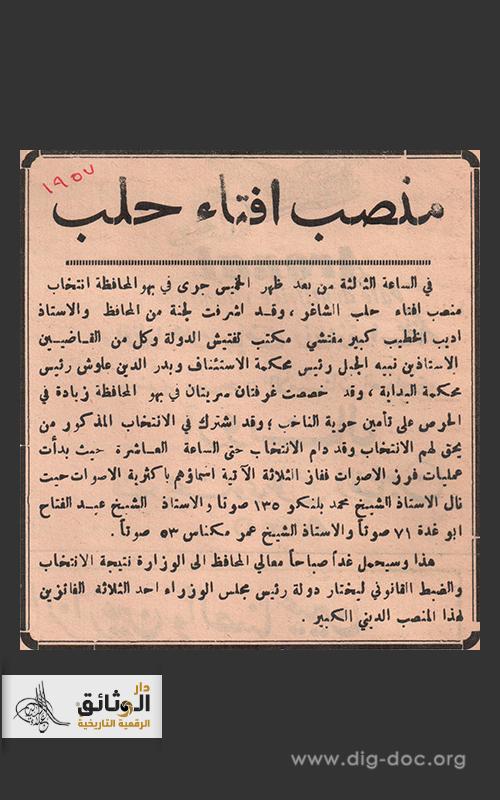 ١٩٥٧
منصب افتاء حلب
في الساعة الثالثة من بعد ظهر الخميس جرى في بهو المحافظة انتخاب
منصب افتاء حلب الشاغر ، وقد اشرفت لجنة من المحافظ والاستاذ
اديب الخطيب كبير مفتشي مكتب تفتيش الدولة وكل من القاضيين
الاستاذين نبيه الجبل رئيس محكمة الاستئناف وبدر الدين علوش رئيس
محكمة البداية ، وقد خصصت غرفتان سريتان في بهو المحافظة زيادة في
الحرص على تأمين حرية الناخب ؛ وقد اشترك في الانتخاب المذكور من
يحق لهم الانتخاب وقد دام الانتخاب حتى الساعة العاشرة حيث بدأت
عمليات فرز الاصوات ففاز الثلاثة الآتية اسماؤهم باكثرية الاصوات حيث
نال الاستاذ الشيخ محمد بلنكو ١٣٥ صوتا والاستاذ الشيخ عبد الفتاح
ابو غدة ٧١ صوتاً والاستاذ الشيخ عمر مكناس ٥٣ صوتاً .
هذا وسيحمل غداً صباحاً معالي المحافظ الى الوزارة نتيجة الانتخاب
والضبط القانوني ليختار دولة رئيس مجلس الوزراء احد الثلاثة الفائزين
لهذا المنصب الديني الكبير .
دار
الوثائق
الرقمية التاريخية
www.dig-doc.org